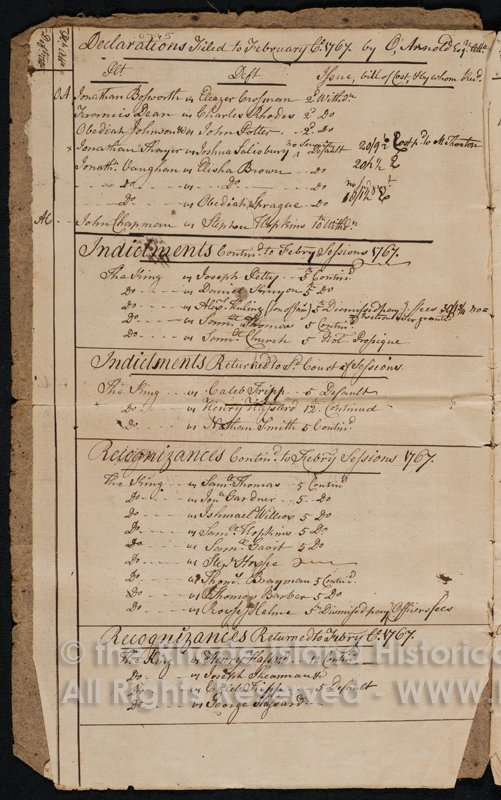 Declarations Filed to February Ct. 1767. by O, Arnold Esqr.
Plt Deft Issue, bill of Cost, & by whom
Jonathan Bosworth vs Eleazer Crosman 2 Withdn
Francis Dean vs Charles Rhodes 2 Do
Obediah Johnson vs John Potter 2 Do
x Jonathan Thayer vs Joshua Salisbury no Security Default
Jonathn. Vaughan vs Elisha Brown Do
Do vs Do Do
Do vs Obediah Sprague Do
John Chapman vs Stephen Hopkins Withdn
Indictments Contind. to Febry Sessions 1767.
The King vs Joseph Petty 5 Contind
Do vs Daniel 5 Do
Do vs Alexr. Huling (son of) 5 Dismissed pay'g fees
Do vs Saml. Thomas 5 Contind
Do vs Saml. Church 5
Indictments Returned to Sd. Court of Sessions
The King vs Caleb Tripp 5 Default
Do vs Henry Hassard 12 Continued
Do vs Nathan Smith 5 Contind
Recognizances Contind. to Febry Sessions 1767.
The King vs Saml. Thomas 5 Contind
Do vs Jno. Gardner 5 Do
Do vs Ishmael Wilcox 5 Do
Do vs Saml. Hopkins 5 Do
Do vs Saml. Gavit 5 Do
Do vs Stepn.
Do vs Thoms. Brayman 5 Contind
Do vs Thomas Barber 5 Do
Do vs Rowse Helme 5 Dismissed pay'g Officers fees
Recognizances Returned to Febry Ct. 1767.
The King vs Henry Hassard 12 Contind
Do vs Joseph Shearman
Do vs Caleb Tripp 5 Default
Do vs George Hassard
© the Rhode Island Historica
All Rights Reserved - www.